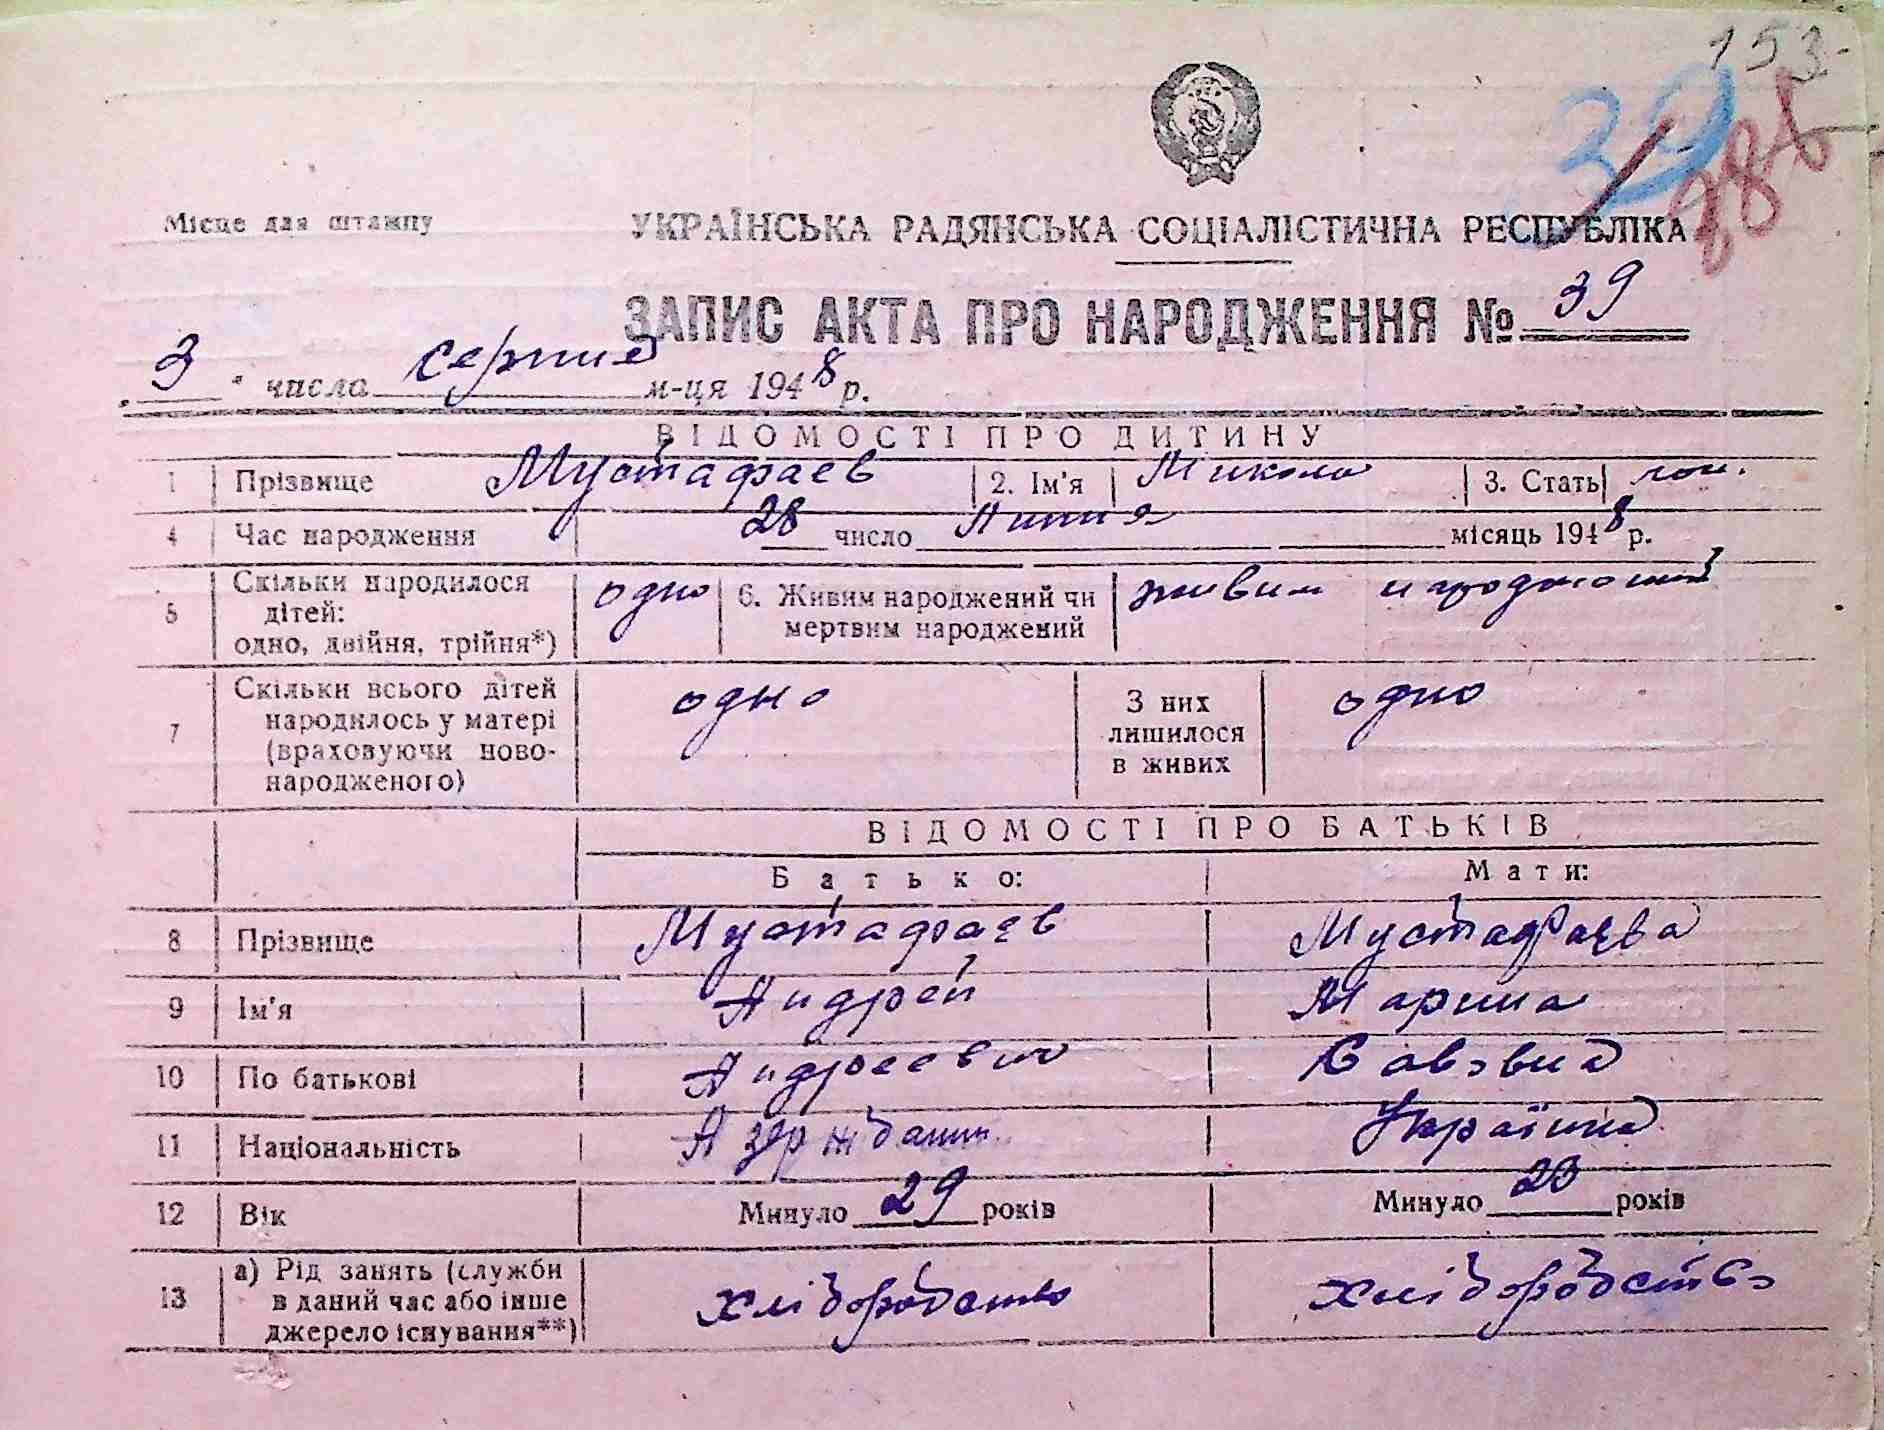 153
39
Місце для штампу
УКРАЇНСЬКА РАДЯНСЬКА СОЦІАЛІСТИЧНА РЕСПУБЛІКА
ЗАПИС АКТА ПРО НАРОДЖЕННЯ № 39
„3" числа серпня м-ця 1948 р.
ВІДОМОСТІ ПРО ДИТИНУ
1 Прізвище Мустафаев 2. Ім'я Микола 3. Стать чол.
4 Час народження 28 число Липня місяць 1948 р.
5 Скільки народилося дітей: одно, двійня, трійня*) одно 6. Живим народжений чи мертвим народжений живим народжений
7 Скільки всього дітей народилось у матері (враховуючи новонародженого) одно З них лишилося в живих одно
ВІДОМОСТІ ПРО БАТЬКІВ
Батько: Мати:
8 Прізвище Мустафаев Мустафаева
9 Ім'я Андрей Марина
10 По батькові Андреевич Савовна
11 Національність Україна
12 Вік Минуло 29 років Минуло 23 років
13 а) Рід занять (служби в даний час або інше джерело існування**) хліборобство хліборобство